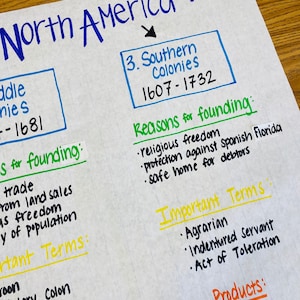 North America
3. Southern
Colonies
1607-1732
Reasons for founding:
• religious freedom
• protection against Spanish Florida
• safe home for debtors
Important Terms:
• Agrarian
• Indentured Servant
• Act of Toleration
Products:
ddle
nies
- 1681
s for founding:
trade
from land sales
freedom
y of population
rtant Terms:
Colon